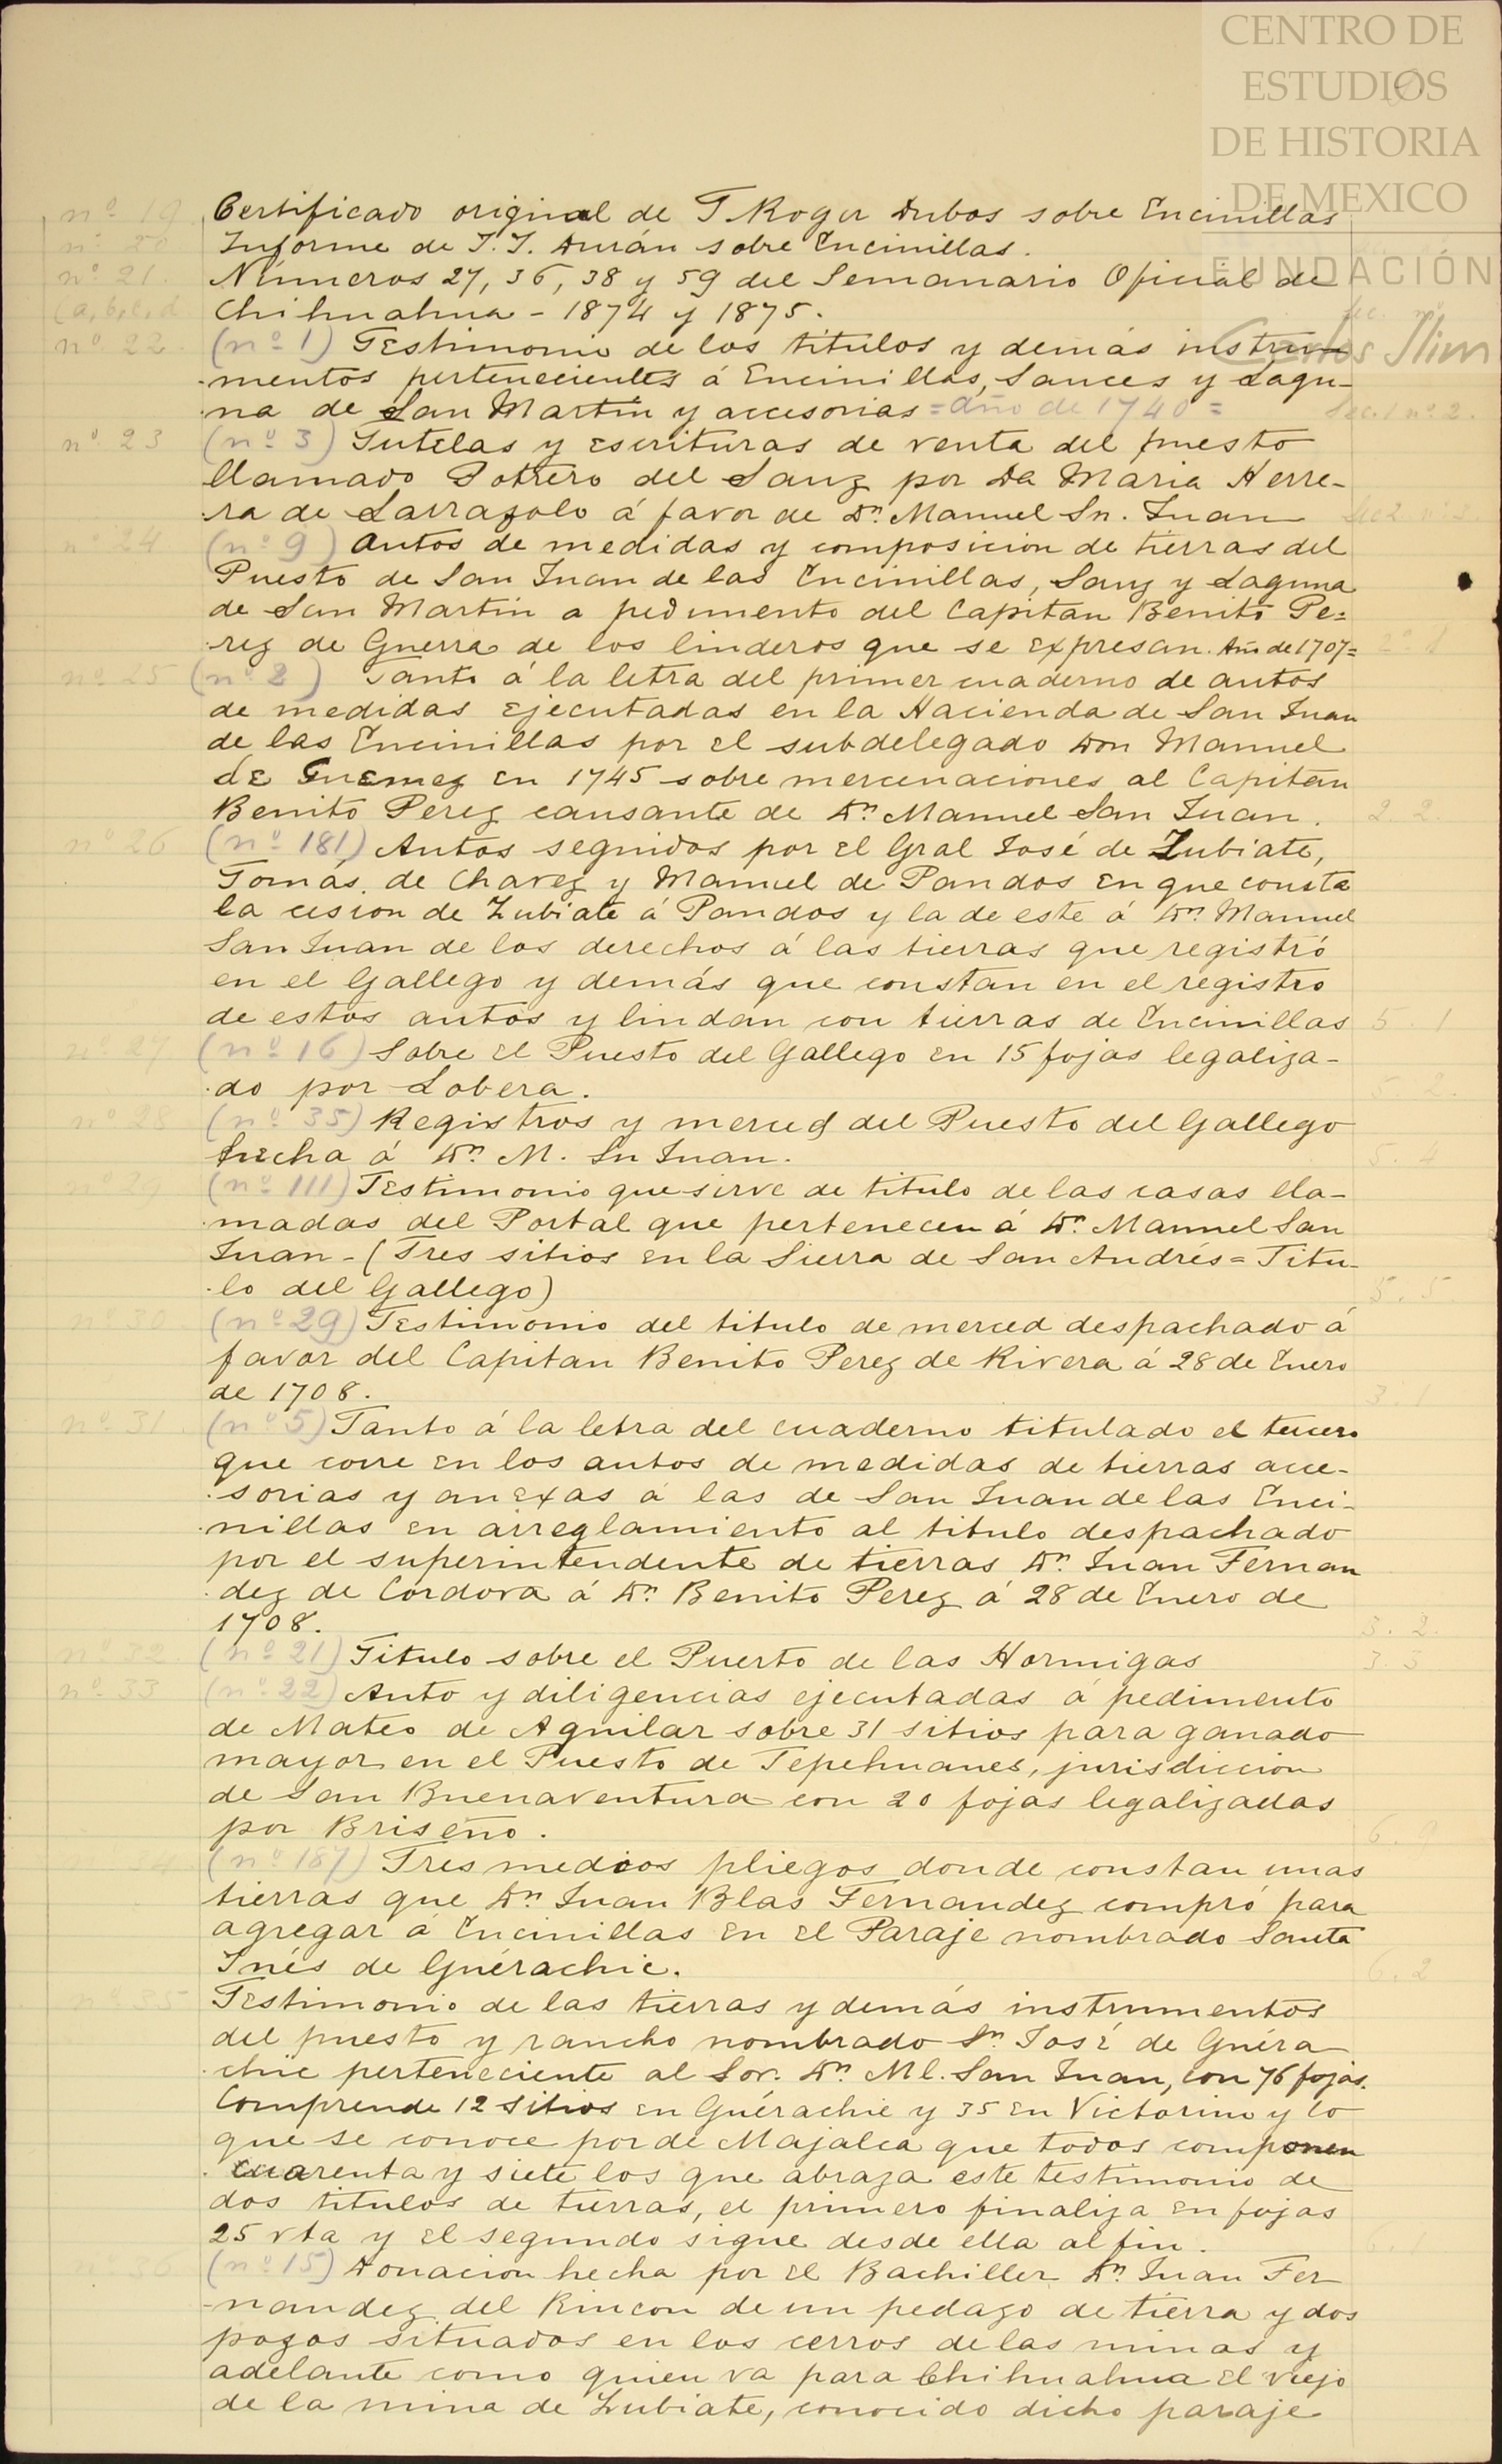 CENTRO DE
ESTUDIOS
DE HISTORIA
DE MEXICO
FUNDACIÓN
Carlos Slim
nº 19 Certificado original de T Roger Dubos sobre Encinillas
nº 20 Informe de J. J. Durán sobre Encinillas.
nº 21. Números 27, 36, 38 y 59 del Semanario Oficial de
(a, b, c, d Chihuahua - 1874 y 1875.
nº 22 (nº 1) Testimonio de los titulos y demás instru-
mentos pertenecientes á Encinillas, Sauces y Lagu-
na de San Martin y accesorias = año de 1740 = Sec. 1 nº 2.
nº 23 (nº 3) Tutelas y escrituras de venta del puesto
llamado Potrero del Sauz por Da Maria Herre-
ra de Larrazolo á favor de Dn. Manuel Sn. Juan
nº 24 (nº 9) Autos de medidas y composicion de tierras del
Puesto de San Juan de las Encinillas, Sauz y Laguna
de San Martin a pedimento del Capitan Benito Pe=
rez de Guerra de los linderos que se expresan. Año de 1707= 2º 1
nº 25 (nº 2) Tanto á la letra del primer cuaderno de autos
de medidas ejecutadas en la Hacienda de San Juan
de las Encinillas por el subdelegado Don Manuel
de Guemez en 1745 sobre mercenaciones al Capitan
Benito Perez causante de Dn. Manuel San Juan. 2. 2.
nº 26 (nº 181) Autos seguidos por el Gral José de Zubiate,
Tomas de Chavez y Manuel de Pandos en que consta
la cesion de Zubiate á Pandos y la de este á Dn. Manuel
San Juan de los derechos á las tierras que registró
en el Gallego y demás que constan en el registro
de estos autos y lindan con tierras de Encinillas 5. 1
nº 27 (nº 16) Sobre el Puesto del Gallego en 15 fojas legaliza-
do por Lobera. 5. 2.
nº 28 (nº 35) Registros y merced del Puesto del Gallego
hecha á Dn. M. Sn Juan. 5. 4
nº 29 (nº 111) Testimonio que sirve de titulo de las casas lla-
madas del Portal que pertenecen á Dn. Manuel San
Juan - (Tres sitios en la Sierra de San Andres = Titu-
lo del Gallego) 5. 5.
nº 30 (nº 29) Testimonio del titulo de merced despachado á
favor del Capitan Benito Perez de Rivera á 28 de Enero
de 1708. 3. 1
nº 31 (nº 5) Tanto á la letra del cuaderno titulado el tercero
que corre en los autos de medidas de tierras acce-
sorias y anexas á las de San Juan de las Enci-
nillas en arreglamiento al titulo despachado
por el superintendente de tierras Dn. Juan Fernan
dez de Cordova á Dn. Benito Perez á 28 de Enero de
1708. 3. 2.
nº 32 (nº 21) Titulo sobre el Puerto de las Hormigas 3. 3
nº 33 (nº 22) Auto y diligencias ejecutadas á pedimento
de Mateo de Aguilar sobre 31 sitios para ganado
mayor en el Puesto de Tepehuanes, jurisdiccion
de San Buenaventura con 20 fojas legalizadas
por Briseño.
34 (nº 187) Tres medios pliegos donde constan unas
tierras que Dn. Juan Blas Fernandez compró para
agregar á Encinillas en el Paraje nombrado Santa
Inés de Guérachic. 6. 2
nº 35 Testimonio de las tierras y demás instrumentos
del puesto y rancho nombrado Sn. José de Guéra
chic perteneciente al Sor. Dn. Ml. San Juan, con 76 fojas.
Comprende 12 sitios en Guérachic y 35 en Victorino y lo
que se conoce por de Majalca que todos componen
cuarenta y siete los que abraza este testimonio de
dos titulos de tierras, el primero finaliza en fojas
25 vta y el segundo sigue desde ella al fin. 6. 1
(nº 15) Donacion hecha por el Bachiller Dn. Juan Fer
nandez del Rincon de un pedazo de tierra y dos
pozos situados en los cerros de las minas y
adelante como quien va para Chihuahua el viejo
de la mina de Zubiate, conocido dicho paraje